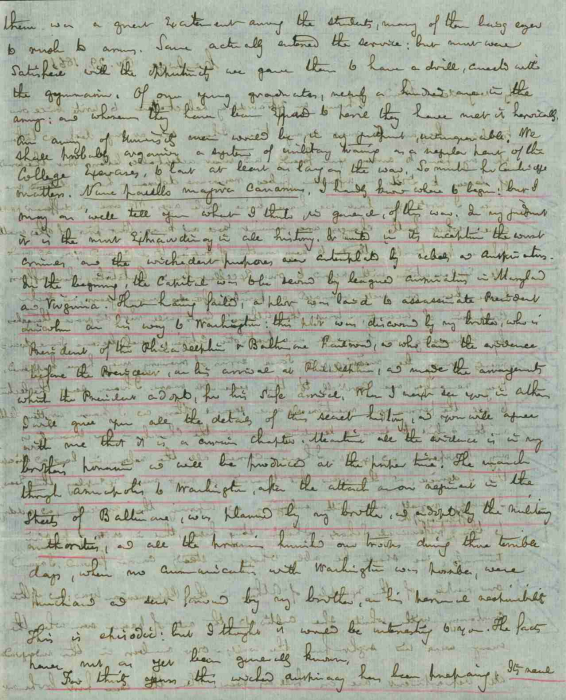 there was a great excitement among the students, many of them being eager
to rush to arms. Some actually entered the service; but most were
satisfied with the opportunity we gave them to have a drill, connected with
the gymnasium. Of our young graduates, nearly a hundred are in the
army; and whenever they have been exposed to peril they have met it heroically.
An army of University men would be, in my judgment, unconquerable. We
shall probably organize a system of military training as a regular part of the
College exercises, to last at least as long as the war. So much for Cambridge
matters. Nunc paullo majora canamus. I hardly know where to begin; but I
may as well tell you what I think, in general, of this war. In my judgment
it is the most extraordinary in all history. In its inception the worst
crimes and the wickedest purposes were contemplated by rebels and conspirators.
In the beginning, the Capital was to be seized by leagued conspirators in Maryland
and Virginia. That having failed, a plot was laid to assassinate President
Lincoln on his way to Washington; this plot was discovered by my brother, who is
President of the Philadelphia & Baltimore Railroad, and who laid the evidence
before the President, on his arrival at Philadelphia, and made the arrangements
which the President adopted, for his safe arrival. When I next see you in Athens
I will give you all the details of the secret history, and you will agree
with me that it is a curious chapter. Meantime all the evidence is in my
brother's possession and will be produced at the proper time. The march
through Annapolis to Washington, after the attack on our regiment in the
streets of Baltimore, was planned by my brother, and adopted by the military
authorities, and all the provisions furnished our troops during those terrible
days, when no communication with Washington was possible, were
purchased and sent forward by my brother, on his personal responsibility.
This is episodic; but I thought it would be interesting to you. The facts
have not as yet been generally known.
For thirty years, this wicked conspiracy has been preparing. Its real